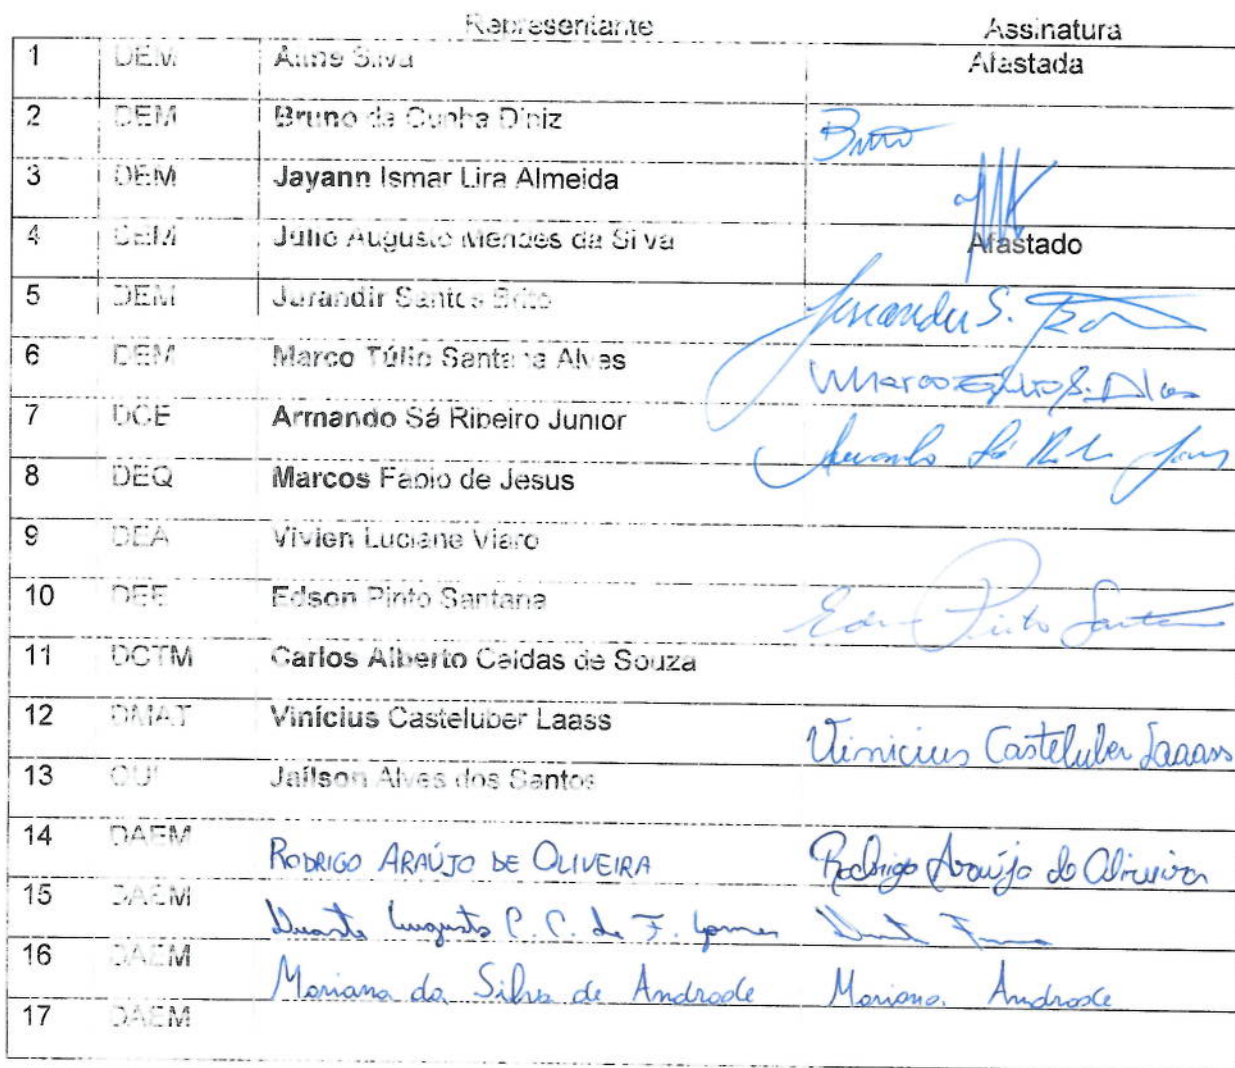 Representante Assinatura
1 DEM Aline Silva Afastada
2 DEM Bruno da Cunha Diniz
3 DEM Jayann Ismar Lira Almeida
4 DEM Julio Augusto Mendes da Silva Afastado
5 DEM Jurandir Santos Brito Jurandir S.
6 DEM Marco Túlio Santana Alves Marco Túlio S. Alves
7 DCE Armando Sá Ribeiro Junior Armando Sá
8 DEQ Marcos Fábio de Jesus
9 DEA Vivien Luciane Viaro
10 DEE Edson Pinto Santana Edson Pinto Santana
11 DCTM Carlos Alberto Caldas de Souza
12 DMAT Vinícius Casteluber Laass Vinicius Casteluber Laass
13 QUI Jaílson Alves dos Santos
14 DAEM RODRIGO ARAÚJO DE OLIVEIRA Rodrigo Araújo de Oliveira
15 DAEM Duarte Augusto P. C. de F. Gomes
16 DAEM Mariana da Silva de Andrade Mariana Andrade
17 DAEM